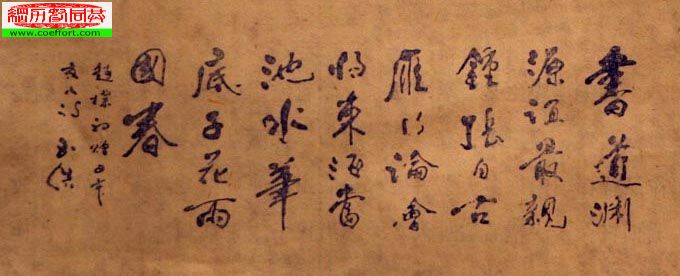 www.coeffort.com
書道淵
源誼最親
鍾張自古
雁行論會
將東海當
池水筆
底千花兩
國春
趙樸初贈日本
友人詩